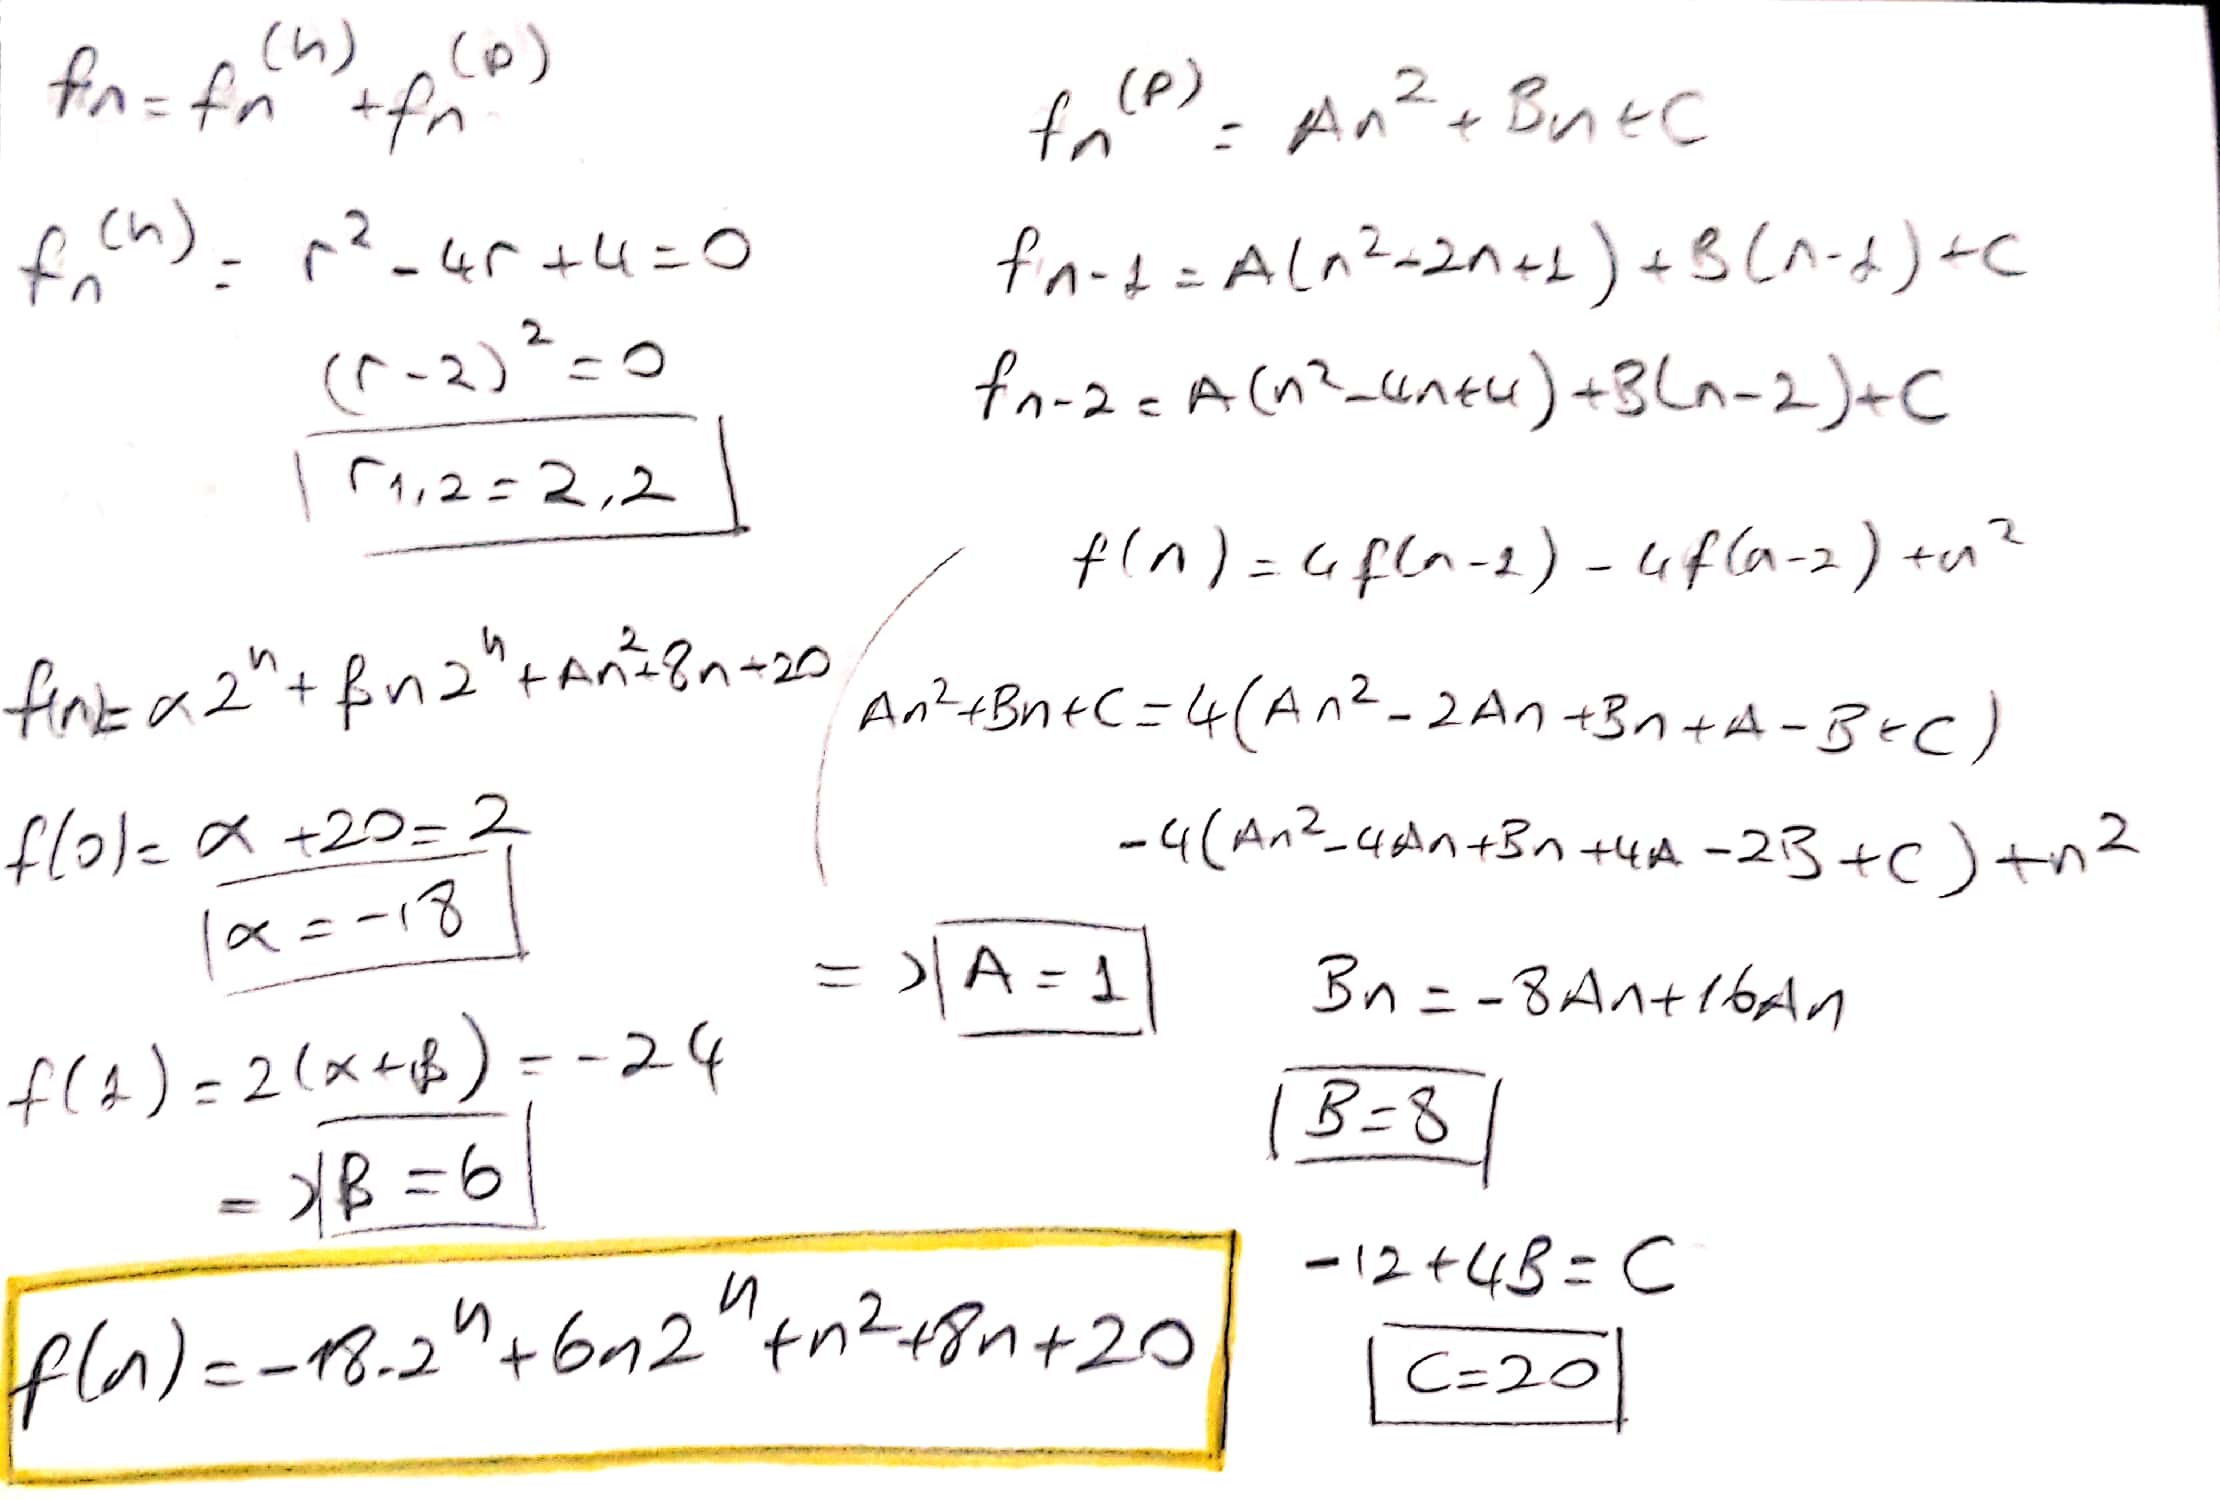 fn = fn^(h) + fn^(p)
fn^(h) = r² - 4r + 4 = 0
(r-2)² = 0
r1,2 = 2,2
f(n) = α2^n + βn2^n + An² + 8n + 20
f(0) = α + 20 = 2
α = -18
f(1) = 2(α+β) = -24
=> β = 6
f(n) = -18.2^n + 6n2^n + n² + 8n + 20
fn^(p) = An² + Bn + C
fn-1 = A(n² - 2n + 1) + B(n-1) + C
fn-2 = A(n² - 4n + 4) + B(n-2) + C
f(n) = 4f(n-1) - 4f(n-2) + n²
An² + Bn + C = 4(An² - 2An + Bn + A - B + C)
-4(An² - 4An + Bn + 4A - 2B + C) + n²
=> A = 1
Bn = -8An + 16An
B = 8
-12 + 4B = C
C = 20